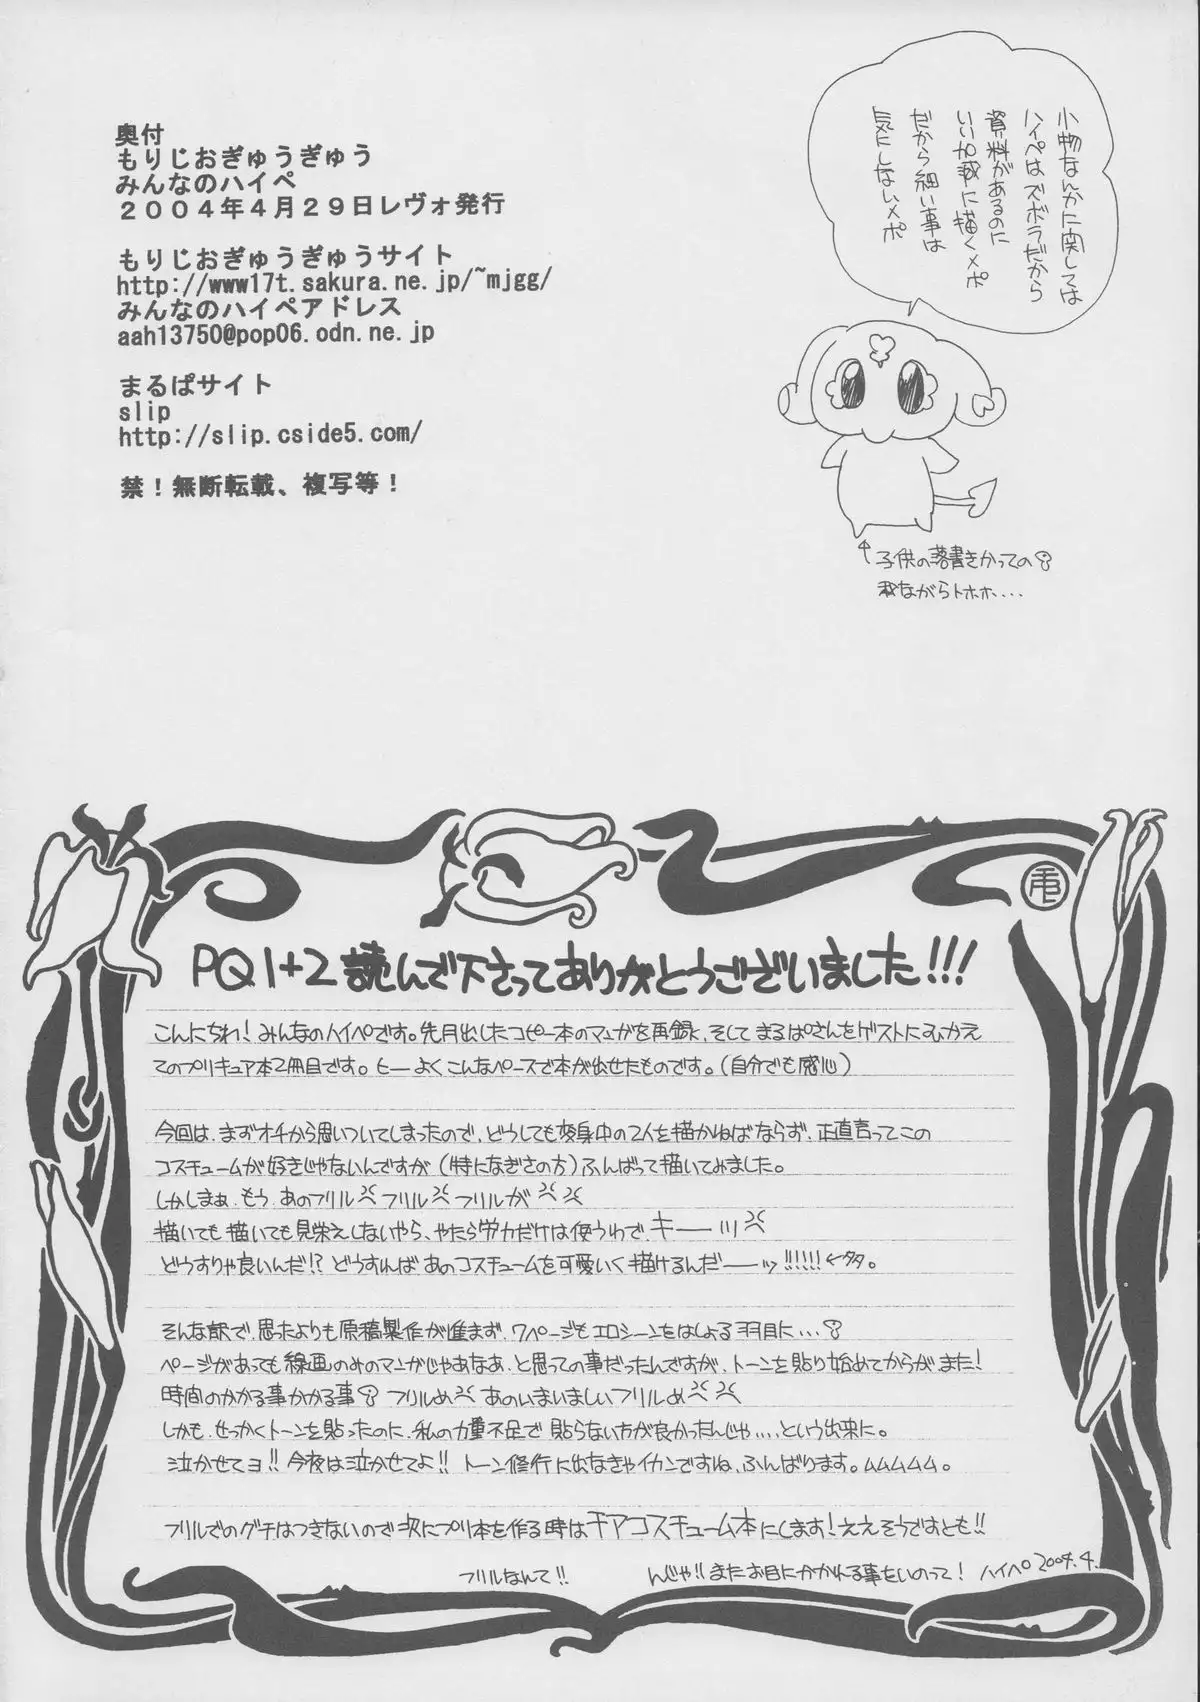 奥付
もりじおぎゅうぎゅう
みんなのハイペ
２００４年４月２９日レヴォ発行
もりじおぎゅうぎゅうサイト
http://www17t.sakura.ne.jp/~mjgg/
みんなのハイペアドレス
aah13750@pop06.odn.ne.jp
まるぱサイト
slip
http://slip.cside5.com/
禁！無断転載、複写等！
小物なんかに関しては
ハイペはズボラだから
資料があるのに
いい加減に描くメポ
だから細い事は
気にしないメポ
↑子供の落書きかっての
我ながらトホホ....
PQ1+2 読んで下さってありがとうございました!!!
こんにちわ！みんなのハイペです。先月出したコピー本のマンガを再録、そして まるぱさんをゲストにむかえ
てのプリキュア本2冊目です。ヒーよくこんなペースで本が出せたものです。(自分でも感心)
今回は、まずオチから思いついてしまったので、どうしても変身中の2人を描かねばならず、正直言ってこの
コスチュームが好きじゃないんですが(特になぎさの方)ふんばって描いてみました。
しかしまぁ、もう、あのフリル フリル フリルが
描いても描いても見栄えしないやら、やたら労力だけは使うわで、キーーッ
どうすりゃ良いんだ!? どうすれば あのコスチュームを可愛いく描けるんだーーッ!!!!!!←多。
そんな訳で、思ったよりも原稿製作が進まず、7ページもエロシーンをはしょる羽目に...
ページがあっても線画のみのマンガじゃあなあ、と思っての事だったんですが、トーンを貼り始めてからがまた！
時間のかかる事かかる事 フリルめ あのいまいましいフリルめ
しかも、せっかくトーンを貼ったのに、私の力量不足で貼らない方が良かったんじゃ....という出来に。
泣かせてヨ!! 今夜は泣かせてよ!! トーン修行に出なきゃイカンですね、ふんばります。ムムムムム。
フリルでのグチはつきないので次にプリ本を作る時はチアコスチューム本にします！ええそうですとも!!
フリルなんて!! んじゃ!!またお目にかかれる事をいのって！ ハイペ 2004.4.